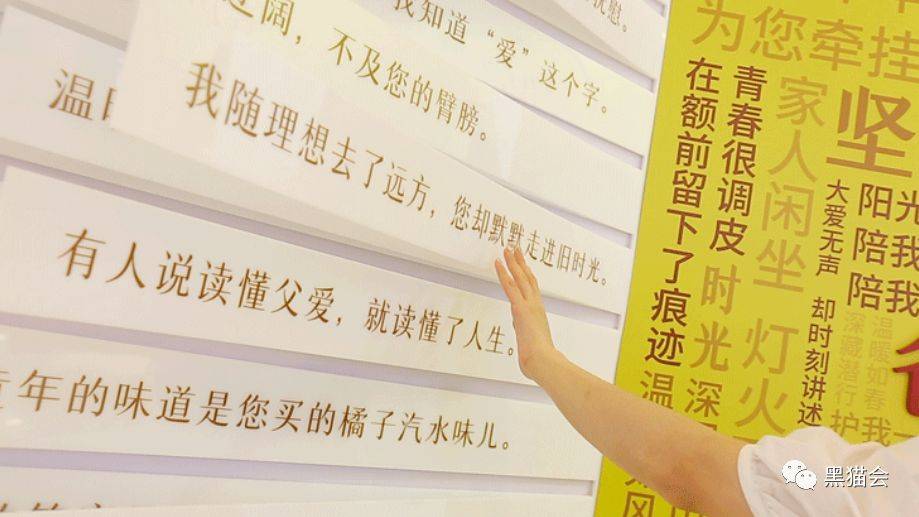 我知道“爱”这个字。
阔，不及您的臂膀。
我随理想去了远方，您却默默走进旧时光。
温
有人说读懂父爱，就读懂了人生。
年的味道是您买的橘子汽水味儿。
为您牵挂
家人闲坐 灯火
青春很调皮
在额前留下了痕迹
时光深
温
风
坚
大爱无声 却时刻讲述
阳光
陪我
陪我
温暖如春
深藏潜行
护
我
黑猫会